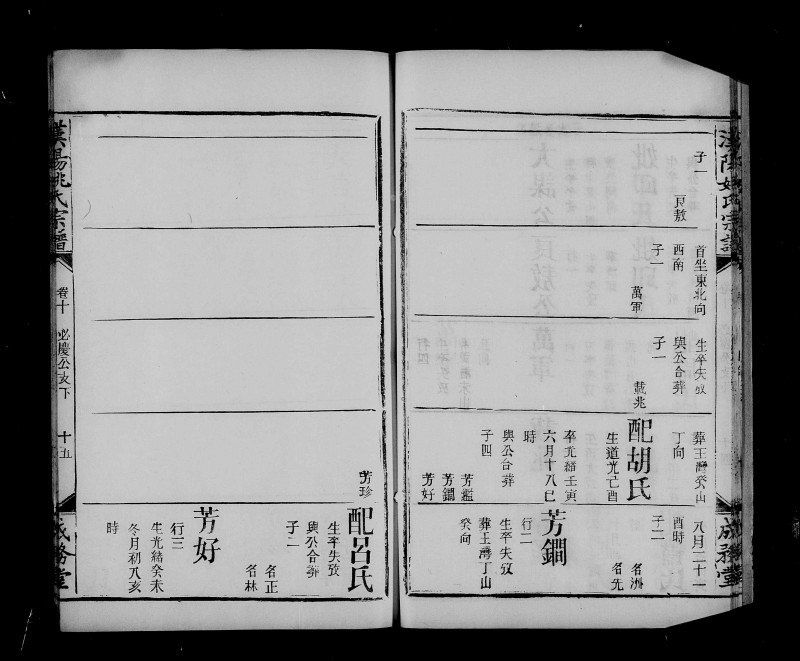 漢陽姚氏宗譜
子一
艮敖
首坐東北向
西南
子一
萬軍
生卒失攷
與公合葬
子一
載兆
葬王灣癸山
丁向
配胡氏
生道光己酉
卒光緒壬寅
六月十八巳
時
與公合葬
子四
芳鑑
芳鐗
芳好
八月二十一
酉時
子二
名洲
名先
芳鐗
行二
生卒失攷
葬王灣丁山
癸向
成務堂
芳珍
配呂氏
生卒失攷
與公合葬
子二
名正
名林
芳好
行三
生光緒癸未
冬月初八亥
時
漢陽姚氏宗譜
卷十
必慶公支下
十五
成務堂